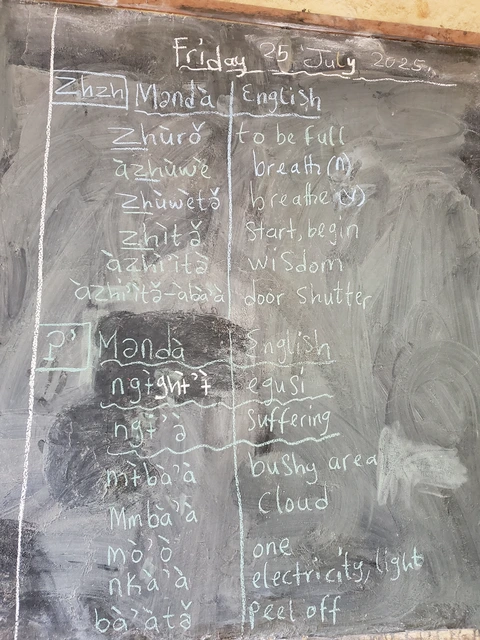 Friday 25 July 2025.
Zhzh Məndà English
Zhùrə̌ to be full
àzhùwè breath (n)
zhùwètə̌ breathe (v)
zhìtə̌ start, begin
àzhi'ità wisdom
àzhi'ità-abà'à door shutter
P' Məndà English
ngɨghɨ'ɨ egusi
ngɨ'à suffering
mɨbà'à bushy area
Mmbà'à cloud
mò'ò one
nkà'à electricity, light
bà'àtə̌ peel off